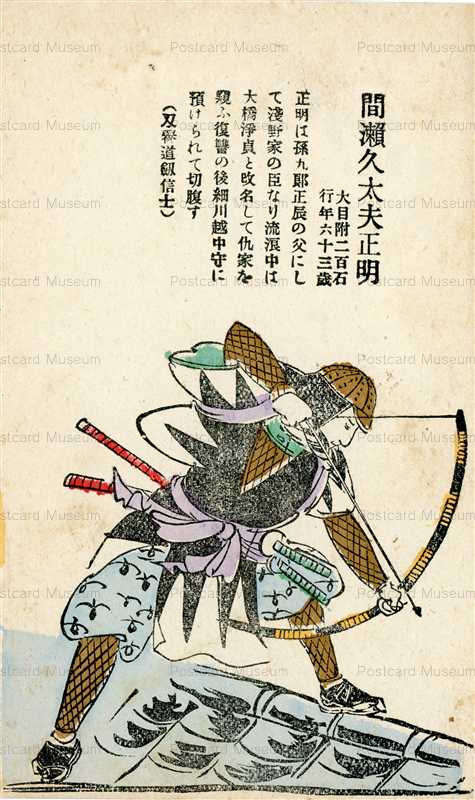 間瀨久太夫正明
大目附二百石
行年六十三歲
正明は孫九郞正辰の父にし
て淺野家の臣なり流浪中は
大橋淨貞と改名して仇家を
窺ふ復讐の後細川越中守に
預けられて切腹す
（刄譽道劔信士）
Postcard Museum